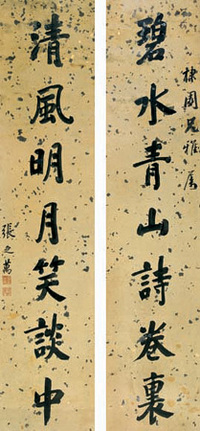 棣園兄雅属
碧水青山詩卷裏
清風明月笑談中
張之萬